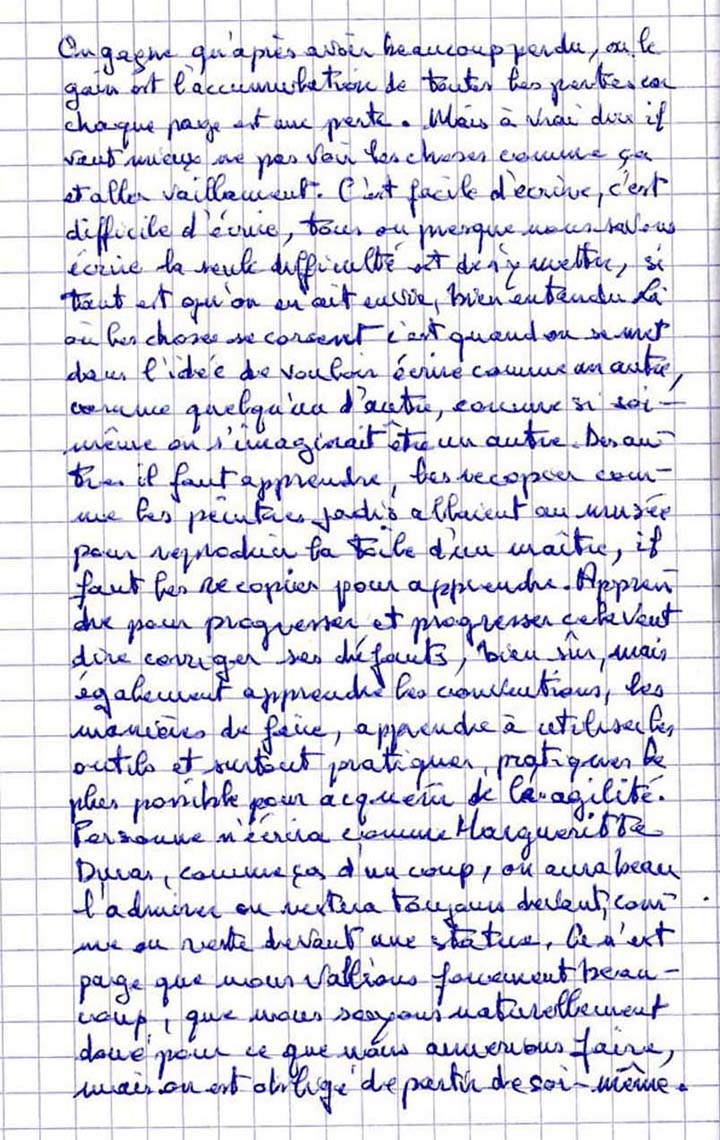 On gagne qu'après avoir beaucoup perdu, ou le
gain est l'accumulation de toutes les pertes car
chaque page est une perte. Mais à vrai dire il
vaut mieux ne pas voir les choses comme ça
et aller vaillament. C'est facile d'écrire, c'est
difficile d'écrire, tous ou presque nous savons
écrire la seule difficulté est de s'y mettre, si
tant est qu'on en ait envie, bien entendu là
où les choses se corsent c'est quand on se met
dans l'idée de vouloir écrire comme un autre,
comme quelqu'un d'autre, comme si soi-
même on s'imaginait être un autre. Des au-
tres il faut apprendre, les recopier com-
me les peintres jadis allaient au musée
pour reproduire la toile d'un maître, il
faut les recopier pour apprendre. Appren
dre pour progresser et progresser cela veut
dire corriger ses défauts, bien sûr, mais
également apprendre les conventions, les
manières de faire, apprendre à utiliser les
outils et surtout pratiquer, pratiquer le
plus possible pour acquérir de la agilité.
Personne n'écrira comme Marguerite
Duras, comme ça d'un coup, on aura beau
l'admirer on restera toujours devant, com-
me on reste devant une statue. Ce n'est
page que nous vallions forcément beau-
coup, que nous soyons naturellement
doué pour ce que nous aimerions faire,
mais on est obligé de partir de soi-même.